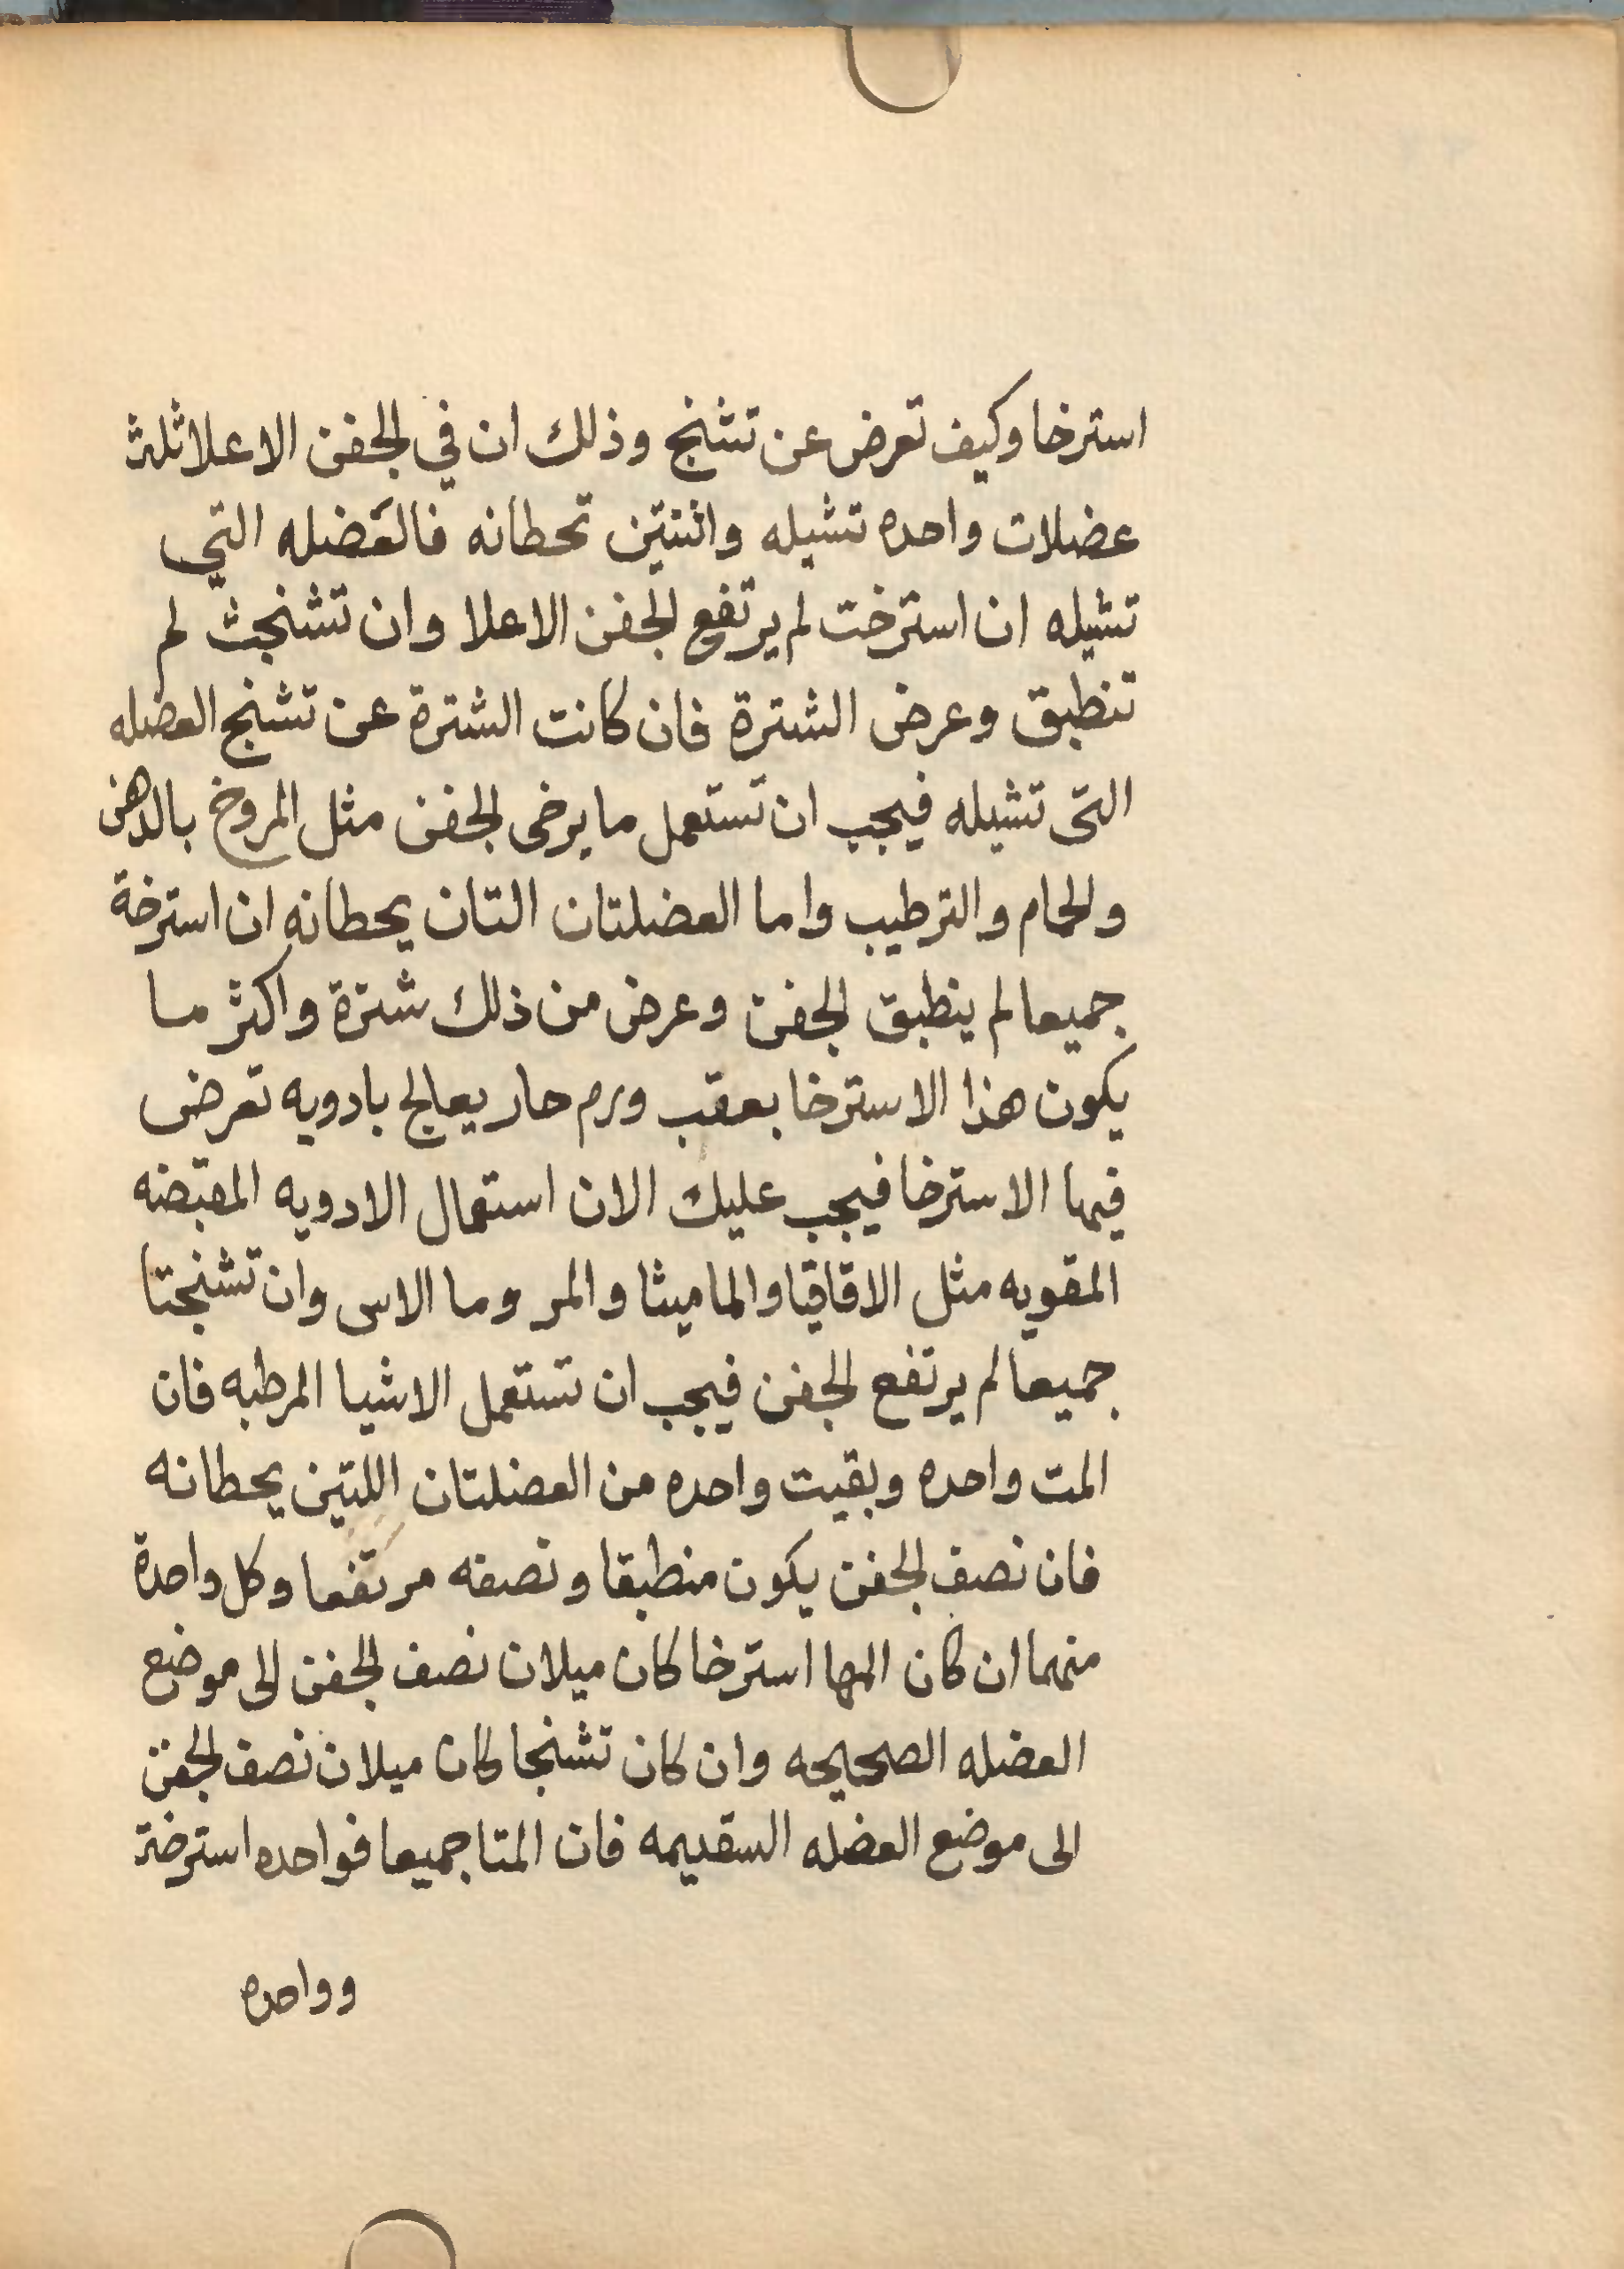 استرخا وكيف تعرض عن تشنج وذلك ان في الجفن الاعلا ثلث
عضلات واحده تشيله واثنتين تحطانه فالعضله التي
تشيله ان استرخت لم يرتفع الجفن الاعلا وان تشنجت لم
تنطبق وعرض الشترة فان كانت الشترة عن تشنج العضله
التى تشيله فيجب ان تستعمل ما يرخى الجفن مثل المروخ بالدهن
والحمام والترطيب واما العضلتان التان يحطانه ان استرخة
جميعا لم ينطبق الجفن وعرض من ذلك شترة واكثر ما
يكون هذا الاسترخا بعقب ورم حار يعالج بادويه تعرض
فيها الاسترخا فيجب عليك الان استعمال الادويه المقبضه
المقويه مثل الاقاقيا والماميثا والمر وما الاس وان تشنجتا
جميعا لم يرتفع الجفن فيجب ان تستعمل الاشيا المرطبه فان
المت واحده وبقيت واحده من العضلتان اللتين يحطانه
فان نصف الجفن يكون منطبقا ونصفه مرتفعا وكل واحدة
منهما ان كان المها استرخا كان ميلان نصف الجفن الى موضع
العضله الصحيحه وان كان تشنجا كان ميلان نصف الجفن
الى موضع العضله السقيمه فان المتا جميعا فواحده استرخة
وواحده